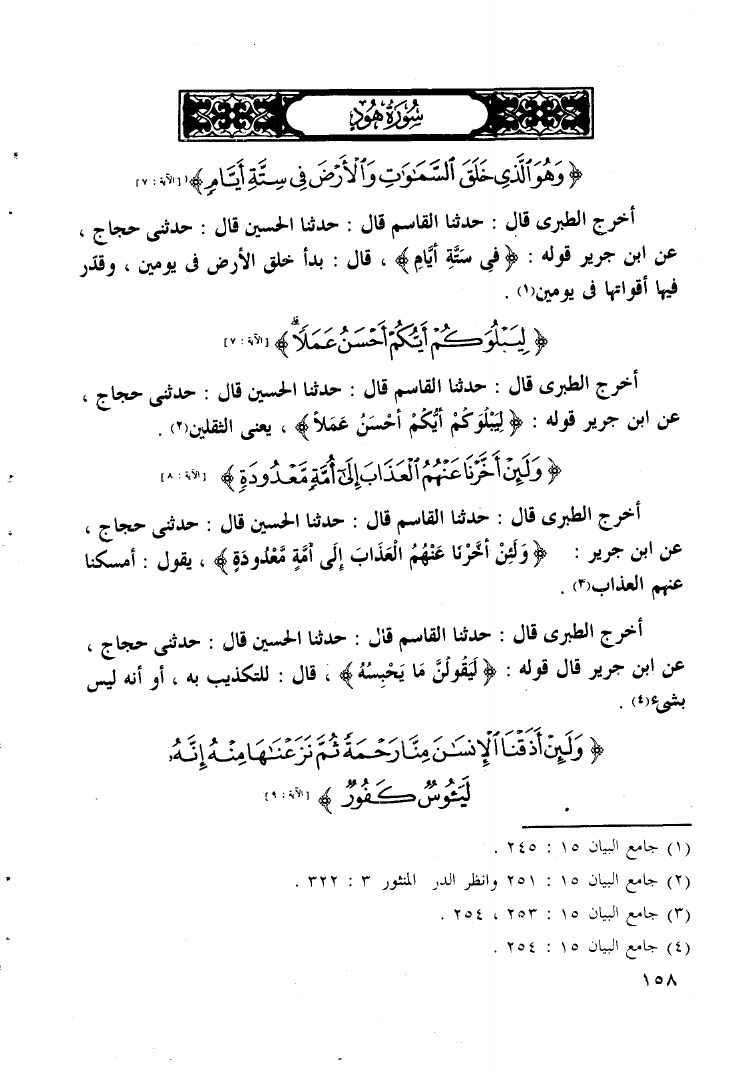 سُورَةُ هُودٍ
﴿ وَهُوَ ٱلَّذِى خَلَقَ ٱلسَّمَٰوَٰتِ وَٱلْأَرْضَ فِى سِتَّةِ أَيَّامٍ ﴾ [الآية : ٧]
أخرج الطبرى قال : حدثنا القاسم قال : حدثنا الحسين قال : حدثنى حجاج ،
عن ابن جرير قوله : ﴿ فِي سِتَّةِ أَيَّامٍ ﴾ ، قال : بدأ خلق الأرض فى يومين ، وقدّر
فيها أقواتها فى يومين(١) .
﴿ لِيَبْلُوَكُمْ أَيُّكُمْ أَحْسَنُ عَمَلًاۗ ﴾ [الآية : ٧]
أخرج الطبرى قال : حدثنا القاسم قال : حدثنا الحسين قال : حدثنى حجاج ،
عن ابن جرير قوله : ﴿ لِيَبْلُوَكُمْ أَيُّكُمْ أَحْسَنُ عَمَلاً ﴾ ، يعنى الثقلين(٢) .
﴿ وَلَئِنْ أَخَّرْنَا عَنْهُمُ ٱلْعَذَابَ إِلَىٰٓ أُمَّةٍ مَّعْدُودَةٍ ﴾ [الآية : ٨]
أخرج الطبرى قال : حدثنا القاسم قال : حدثنا الحسين قال : حدثنى حجاج ،
عن ابن جرير : ﴿ وَلَئِنْ أَخَّرْنَا عَنْهُمُ الْعَذَابَ إِلَى أُمَّةٍ مَّعْدُودَةٍ ﴾ ، يقول : أمسكنا
عنهم العذاب(٣) .
أخرج الطبرى قال : حدثنا القاسم قال : حدثنا الحسين قال : حدثنى حجاج ،
عن ابن جرير قال قوله : ﴿ لَيَقُولُنَّ مَا يَحْبِسُهُ ﴾ ، قال : للتكذيب به ، أو أنه ليس
بشىء(٤) .
﴿ وَلَئِنْ أَذَقْنَا ٱلْإِنسَٰنَ مِنَّا رَحْمَةً ثُمَّ نَزَعْنَٰهَا مِنْهُ إِنَّهُۥ
لَيَـُٔوسٌ كَفُورٌ ﴾ [الآية : ٩]
(١) جامع البيان ١٥ : ٢٤٥ .
(٢) جامع البيان ١٥ : ٢٥١ وانظر الدر المنثور ٣ : ٣٢٢ .
(٣) جامع البيان ١٥ : ٢٥٣ ، ٢٥٤ .
(٤) جامع البيان ١٥ : ٢٥٤ .
١٥٨